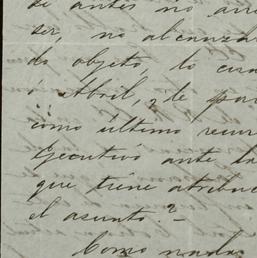 de antes no
ser, no alcanza
do objeto, lo cua
Abril, de pa
como último recur
Ejecutivo ante la
que tiene atribu
el asunto?-
Como nada